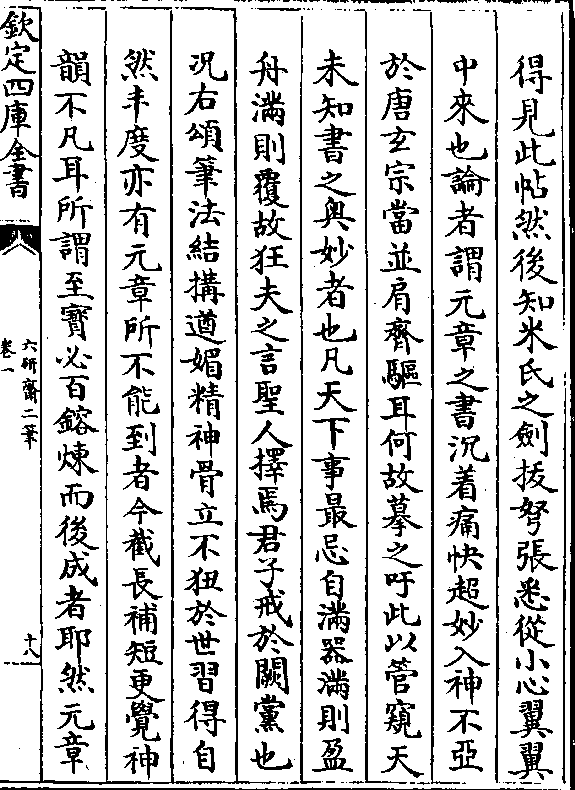 得見此帖然後知米氏之劍拔弩張悉從小心翼翼
中來也論者謂元章之書沉着痛快超妙入神不亞
於唐玄宗當並肩齊驅耳何故摹之吁此以管窺天
未知書之奥妙者也凡天下事最忌自滿器滿則盈
舟滿則覆故狂夫之言聖人擇焉君子戒於闕黨也
况右頌筆法結搆遒媚精神骨立不狃於世習得自
然丰度亦有元章所不能到者今截長補短更覺神
韻不凡耳所謂至寳必百鎔煉而後成者耶然元章
欽定四庫全書
六研齋二筆
卷一
十八